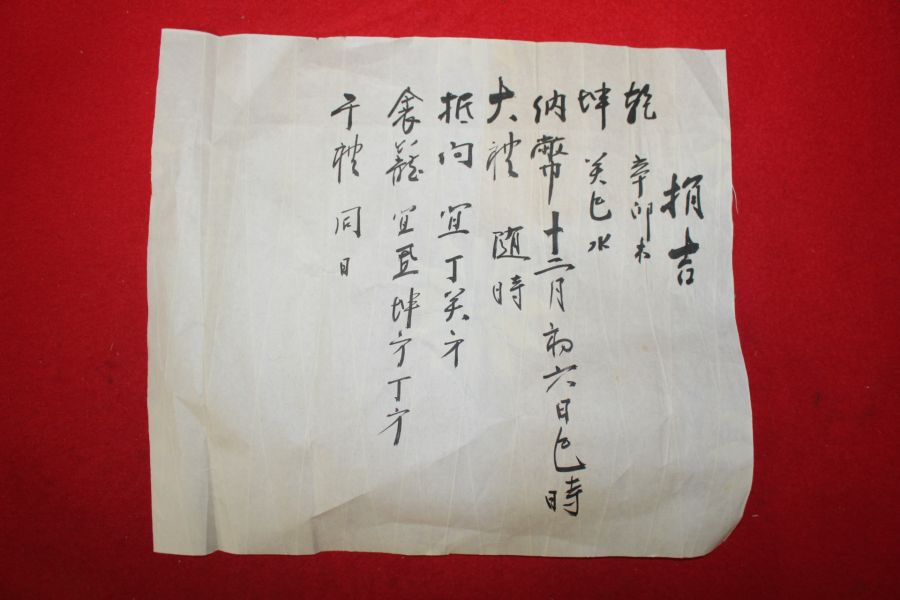 捐吉
乾 辛卯木
坤 癸巳水
納幣 十二月初六日巳時
大禮 随時
抵向 宜丁癸方
衾籠 宜置坤方丁方
于禮 同日